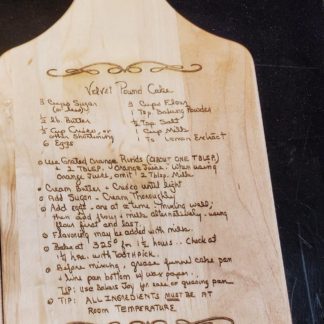 Velvet Pound Cake
3 Cups Sugar
(or less)
3 Cups Flour
1 Tsp. Baking Powder
½ lb. Butter
½ Tsp. Salt
½ Cup Crisco, or
other Shortening
1 Cup Milk
6 Eggs
1 Tsp. Lemon Extract
Use Grated Orange Rinds (ABOUT ONE TBLSP.)
+ 2 TBLSP. Orange Juice. When using
Orange Juice, omit 2 Tblsp. Milk
Cream Butter + Crisco until light
Add Sugar - Cream Thoroughly
Add eggs - one at a time - mixing well;
then add flour + milk alternatively, using
flour first and last.
Flavouring may be added with milk.
Bake at 325° for 1½ hours.. Check at
1¼ hrs. with Toothpick.
Before mixing, grease funnel cake pan
+ line pan bottom w/ wax paper..
TIP: Use Bakers Joy for ease of greasing pan..
TIP: ALL INGREDIENTS MUST BE AT
ROOM TEMPERATURE